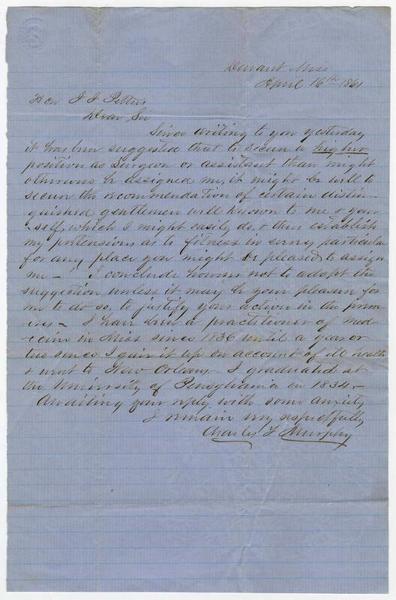 Durant Miss
April 16th 1861
Hon J J Pettus
Dear Sir
Since writing to you yesterday
it has been suggested that to secure a higher
position as Surgeon or assistant than might
otherwise be assigned me, it might be well to
secure the recommendation of certain distin-
guished gentlemen well known to me & your-
self, which I might easily do, & thus establish
my pretensions as to fitness in every particular
for any place you might be pleased to assign
me - I conclude however not to adopt the
suggestion unless it may be your pleasure for
me to do so, to justify your action in the prem-
ises - I have been a practitioner of med-
icine in Miss since 1836 until a year or
two since I gave it up on account of ill health
& went to New Orleans. I graduated at
the University of Pensylvania in 1834 -
Awaiting your reply with some anxiety
I remain very respectfully
Charles F Murphy